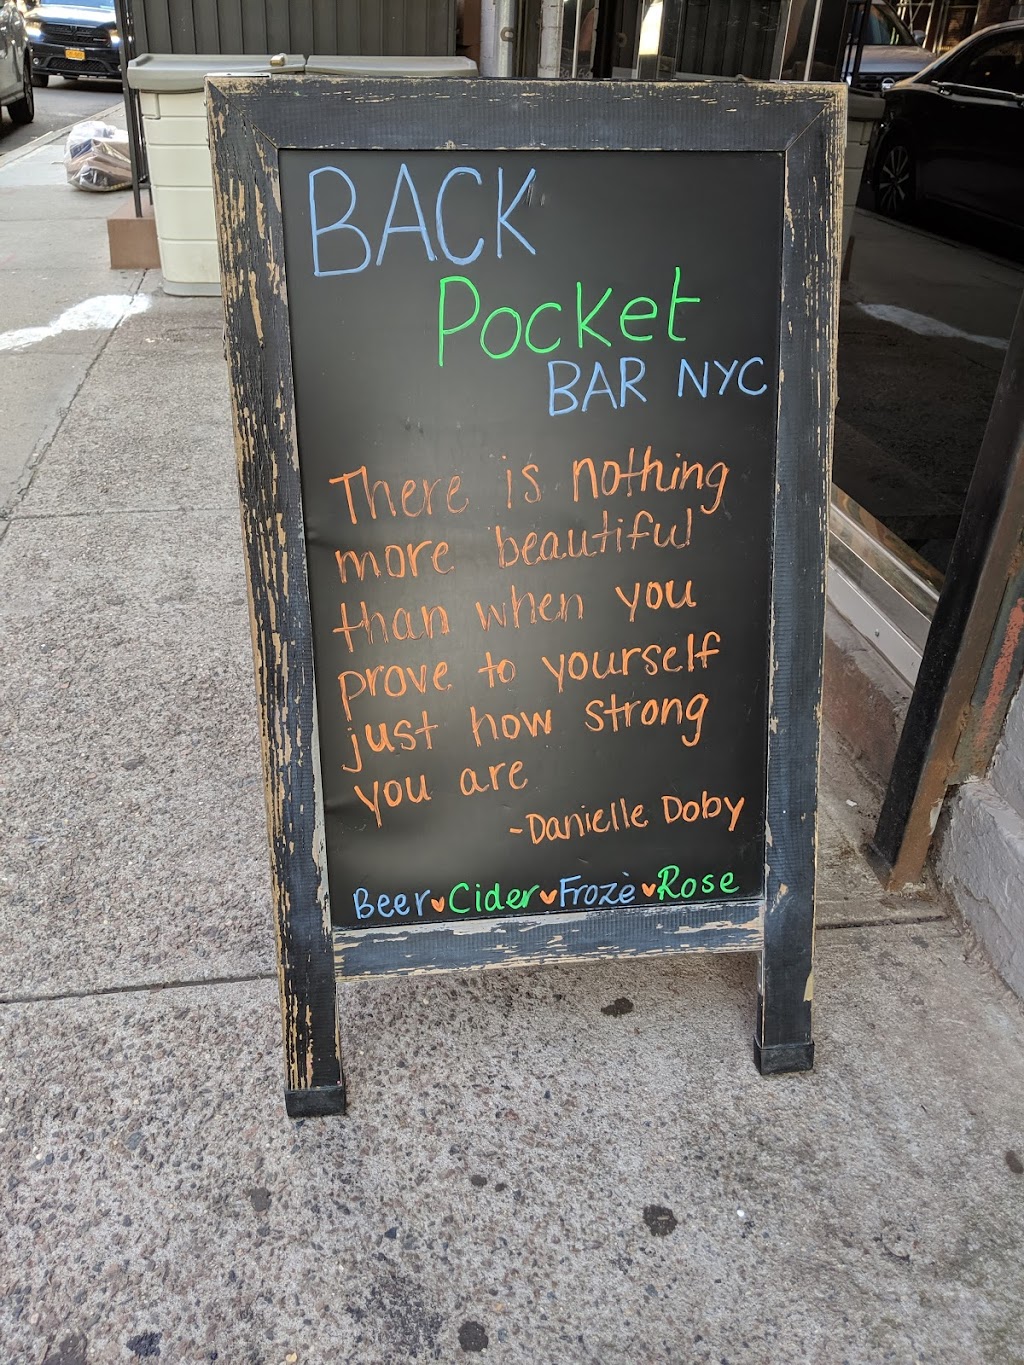 BACK
Pocket
BAR NYC
There is nothing
more beautiful
than when you
prove to yourself
just how strong
you are
-Danielle Doby
Beer Cider Frozè Rose